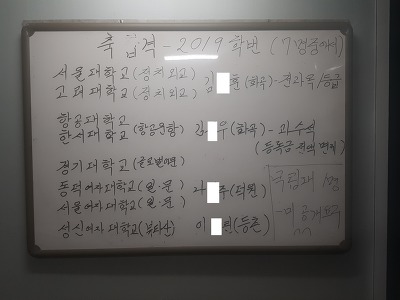 축 합격 - 2019 학번 (7명중에서)
서울대학교 (정치외교)
고려대학교 (정치외교)
김 훈 (화곡) - 전과목 1등급
항공대학교
한서대학교 (항공운항) 김 우 (화곡) - 과수석
(등록금 전액 면제)
경기대학교
동덕여자대학교 (일·문)
서울여자대학교 (일·문)
주 (덕원)
성신여자대학교 (뷰티산) 이 현 (등촌)
국립대 1명
- 미공개요